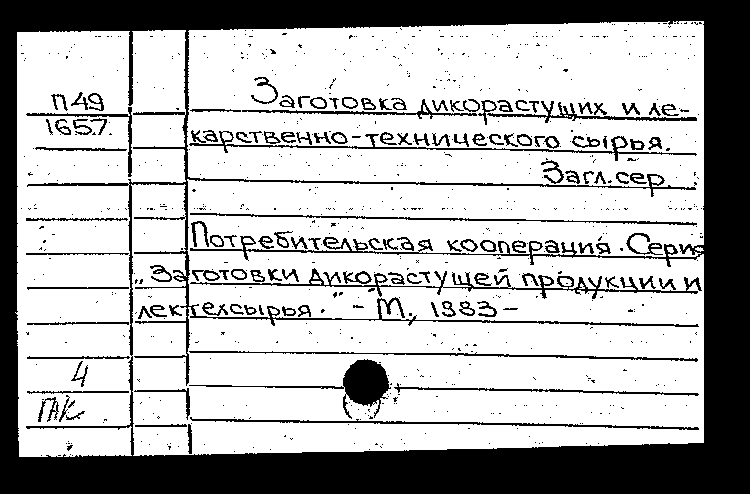 П49
1657.
Заготовка дикорастущих и ле-
карственно-технического сырья.
Загл.сер.
Потребительская кооперация. Серия
„Заготовки дикорастущей продукции и
лектехсырья." - М., 1983-
4
ГПК